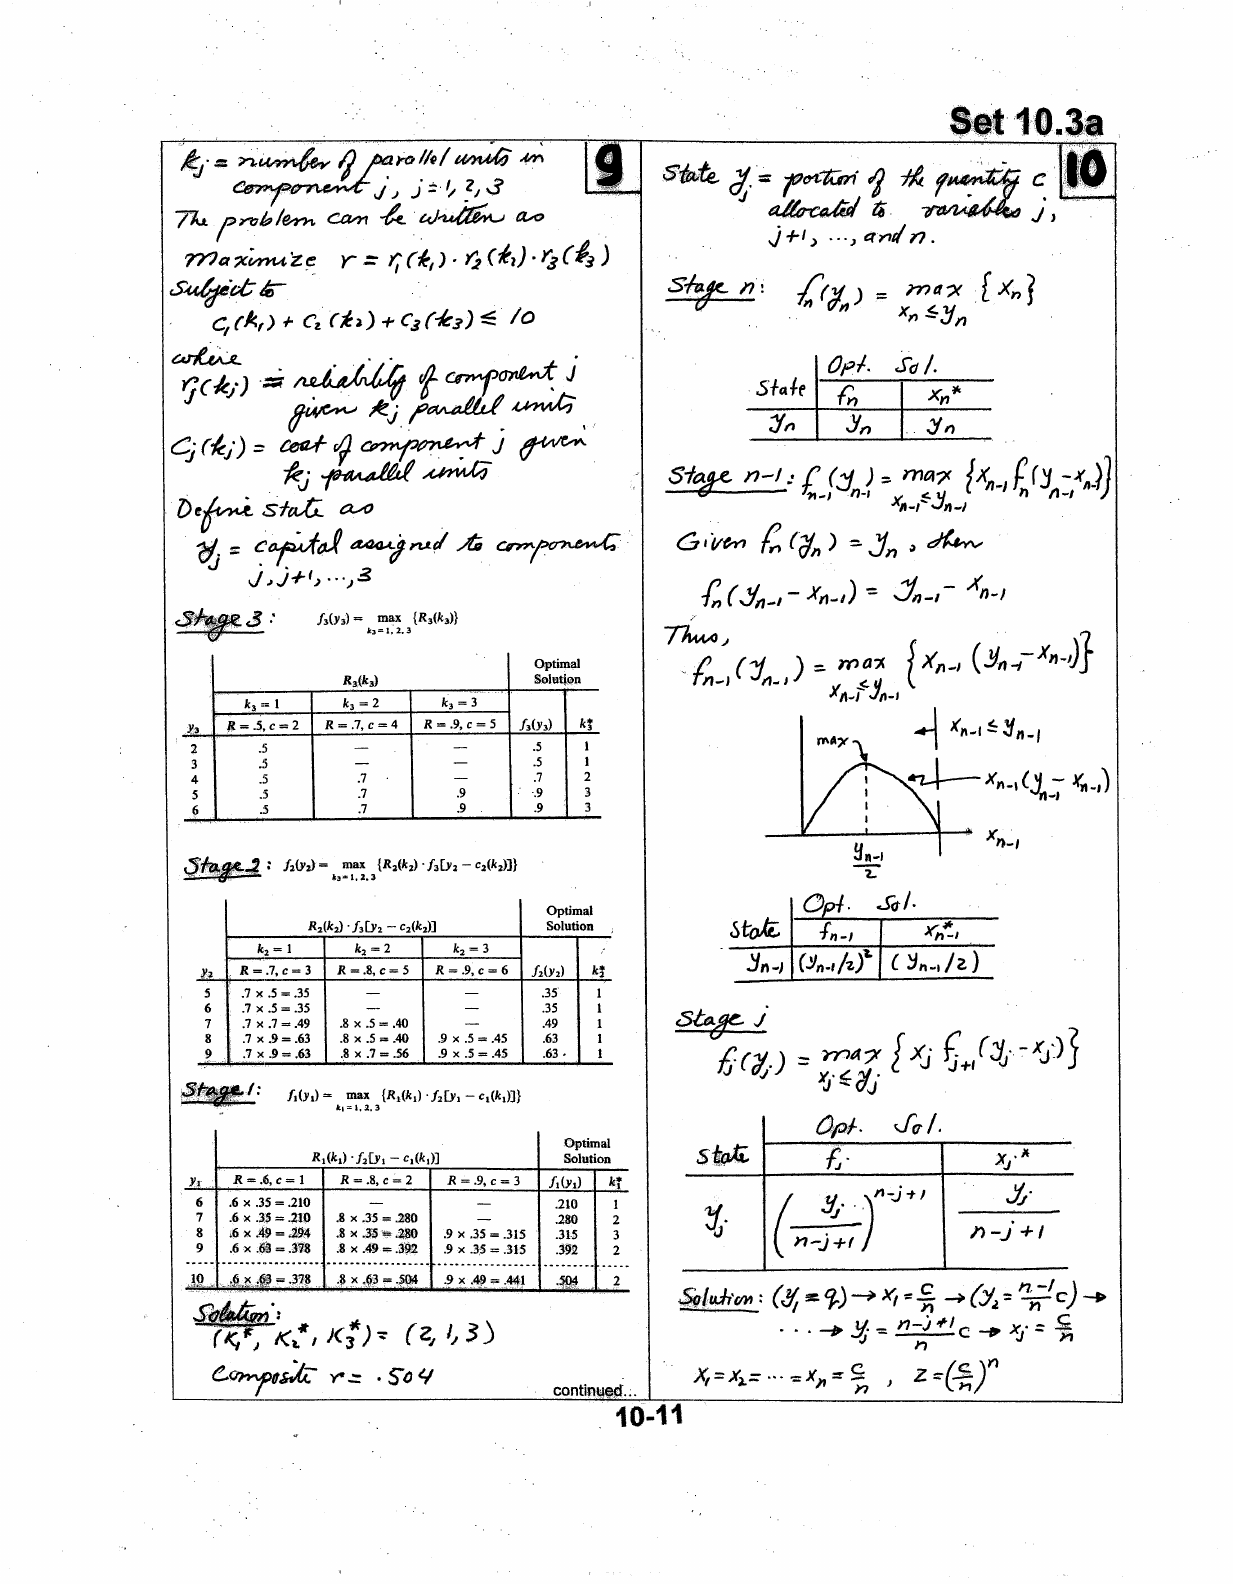 Set 10.3a
9
kj = number of parallel units in
component j, j = 1, 2, 3
The problem can be written as
maximize r = r1(k1) · r2(k2) · r3(k3)
Subject to
c1(k1) + c2(k2) + c3(k3) ≤ 10
where
rj(kj) = reliability of component j
given kj parallel units
Cj(kj) = cost of component j given
kj parallel units
Define state as
yj = capital assigned to components
j, j+1, ..., 3
Stage 3: f3(y3) = max {R3(k3)}
k3=1, 2, 3
Optimal
R3(k3) Solution
k3 = 1 k3 = 2 k3 = 3
y3 R = .5, c = 2 R = .7, c = 4 R = .9, c = 5 f3(y3) k3*
2 .5 — — .5 1
3 .5 — — .5 1
4 .5 .7 — .7 2
5 .5 .7 .9 .9 3
6 .5 .7 .9 .9 3
Stage 2: f2(y2) = max {R2(k2) · f3[y2 − c2(k2)]}
k3=1, 2, 3
Optimal
R2(k2) · f3[y2 − c2(k2)] Solution
k2 = 1 k2 = 2 k2 = 3
y2 R = .7, c = 3 R = .8, c = 5 R = .9, c = 6 f2(y2) k2*
5 .7 × .5 = .35 — — .35 1
6 .7 × .5 = .35 — — .35 1
7 .7 × .7 = .49 .8 × .5 = .40 — .49 1
8 .7 × .9 = .63 .8 × .5 = .40 .9 × .5 = .45 .63 1
9 .7 × .9 = .63 .8 × .7 = .56 .9 × .5 = .45 .63 1
Stage 1: f1(y1) = max {R1(k1) · f2[y1 − c1(k1)]}
k1=1, 2, 3
Optimal
R1(k1) · f2[y1 − c1(k1)] Solution
y1 R = .6, c = 1 R = .8, c = 2 R = .9, c = 3 f1(y1) k1*
6 .6 × .35 = .210 — — .210 1
7 .6 × .35 = .210 .8 × .35 = .280 — .280 2
8 .6 × .49 = .294 .8 × .35 = .280 .9 × .35 = .315 .315 3
9 .6 × .63 = .378 .8 × .49 = .392 .9 × .35 = .315 .392 2
10 .6 × .63 = .378 .8 × .63 = .504 .9 × .49 = .441 .504 2
Solution:
(K1*, K2*, K3*) = (2, 1, 3)
Composite r = .504
continued...
10
State yj = portion of the quantity c
allocated to variables j,
j+1, ..., and n.
Stage n: fn(yn) = max {xn}
xn ≤ yn
Opt. Sol.
State fn xn*
yn yn yn
Stage n-1: fn-1(yn-1) = max {xn-1 fn(yn-1 - xn-1)}
xn-1 ≤ yn-1
Given fn(yn) = yn, then
fn(yn-1 - xn-1) = yn-1 - xn-1
Thus,
fn-1(yn-1) = max {xn-1 (yn-1 - xn-1)}
xn-1 ≤ yn-1
xn-1 ≤ yn-1
max
xn-1(yn-1 - xn-1)
xn-1
yn-1/2
Opt. Sol.
State fn-1 xn-1*
yn-1 (yn-1/2)² (yn-1/2)
Stage j
fj(yj) = max {xj fj+1(yj - xj)}
xj ≤ yj
Opt. Sol.
State fj xj*
yj (yj/(n-j+1))^(n-j+1) yj/(n-j+1)
Solution: (y1 = c) → x1 = c/n → (y2 = (n-1)/n c) →
... → yj = (n-j+1)/n c → xj = c/n
x1 = x2 = ... = xn = c/n , z = (c/n)^n
10-11